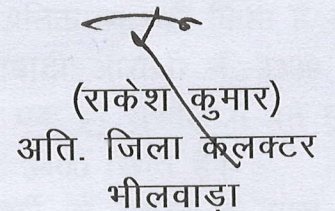 (राकेश कुमार)
अति. जिला कलक्टर
भीलवाड़ा